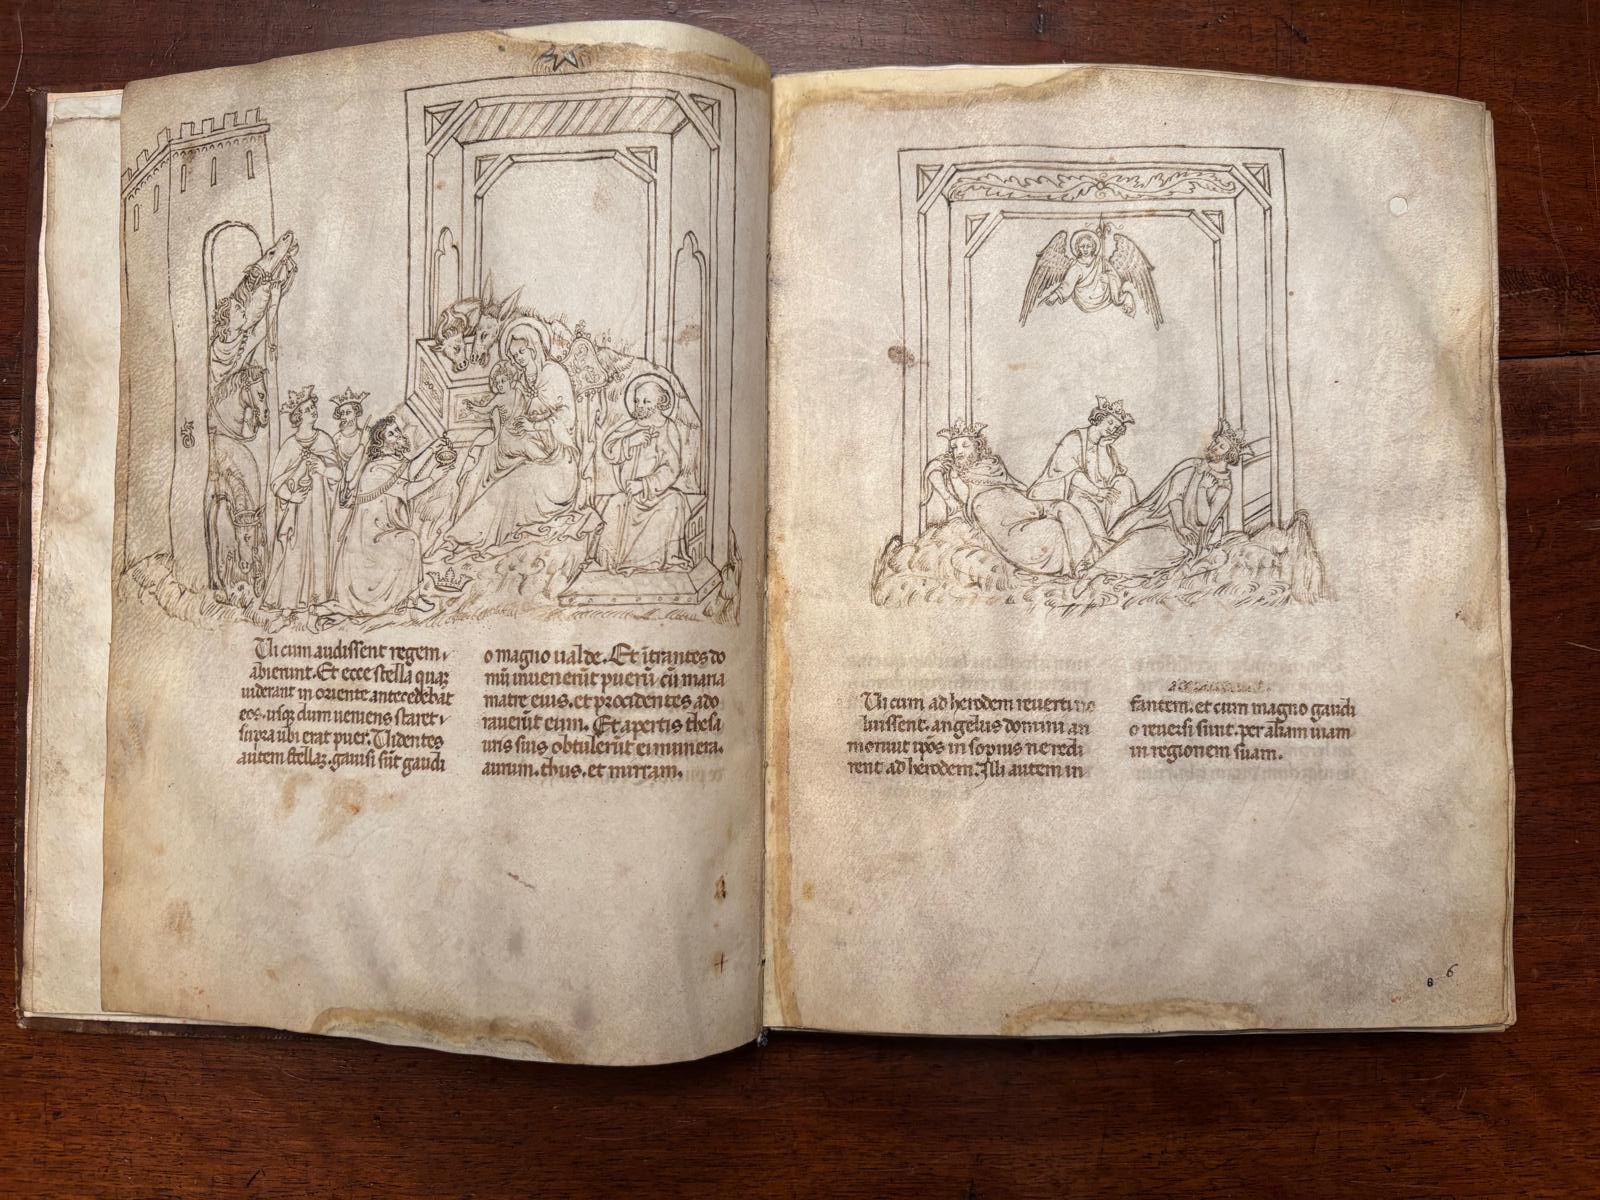 Qui cum audissent regem,
abierunt. Et ecce stella quaɜ
uiderant in oriente antecedebāt
eos. usqɜ dum ueniens staret,
supra ubi erat puer. Uidentes
autem stellaɜ. gauisi sūt gaudi
o magno ualde. Et ītrantes do
mū inuenerūt puerū cū maria
matre eius. et procidentes ado
rauerūt eum. Et apertis thesa
uris suis obtulerūt ei munera.
aurum. thus. et mirram.
Qui cum ad herodem reuerti no
luissent. angelus domini am
monuit ipos in sopnis ne redi
rent ad herodem. Illi autem in
fantem. et cum magno gaudi
o reuersi sunt. per aliam uiam
in regionem suam.
6 6